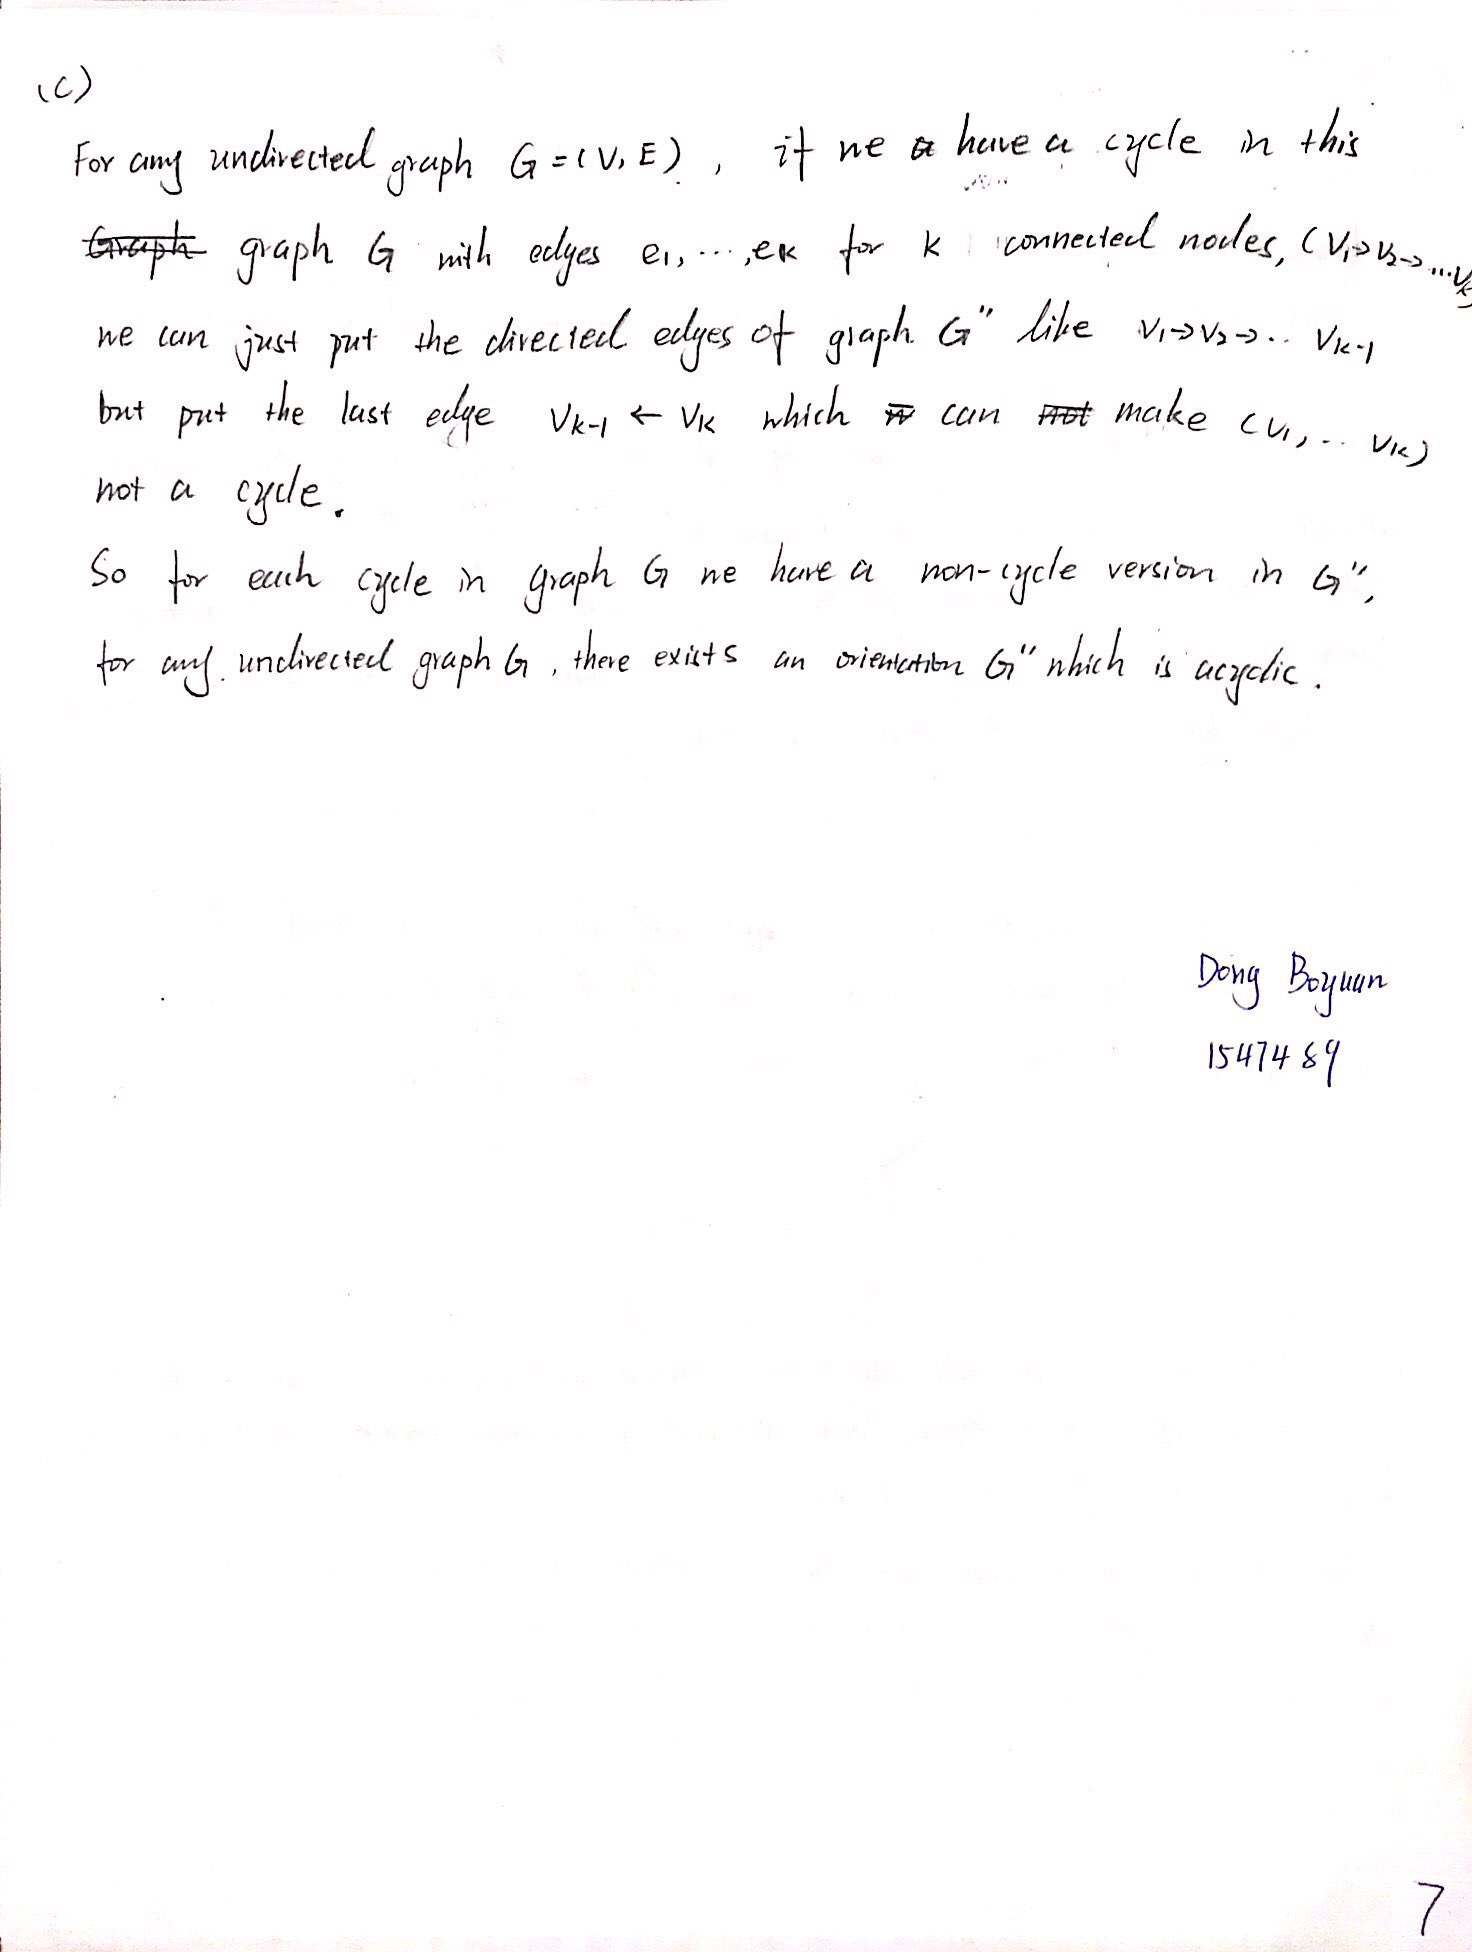 (C)
For any undirected graph G = (V, E), if we have a cycle in this
Graph graph G with edges e1, ..., ek for k connected nodes, (V1→V2→...Vk)
we can just put the directed edges of graph G" like V1→V2→.. Vk-1
but put the last edge Vk-1 ← Vk which can not make (V1, .. Vk)
not a cycle.
So for each cycle in graph G we have a non-cycle version in G",
for any undirected graph G, there exists an orientation G" which is acyclic.
Dong Boyuan
1547489
7